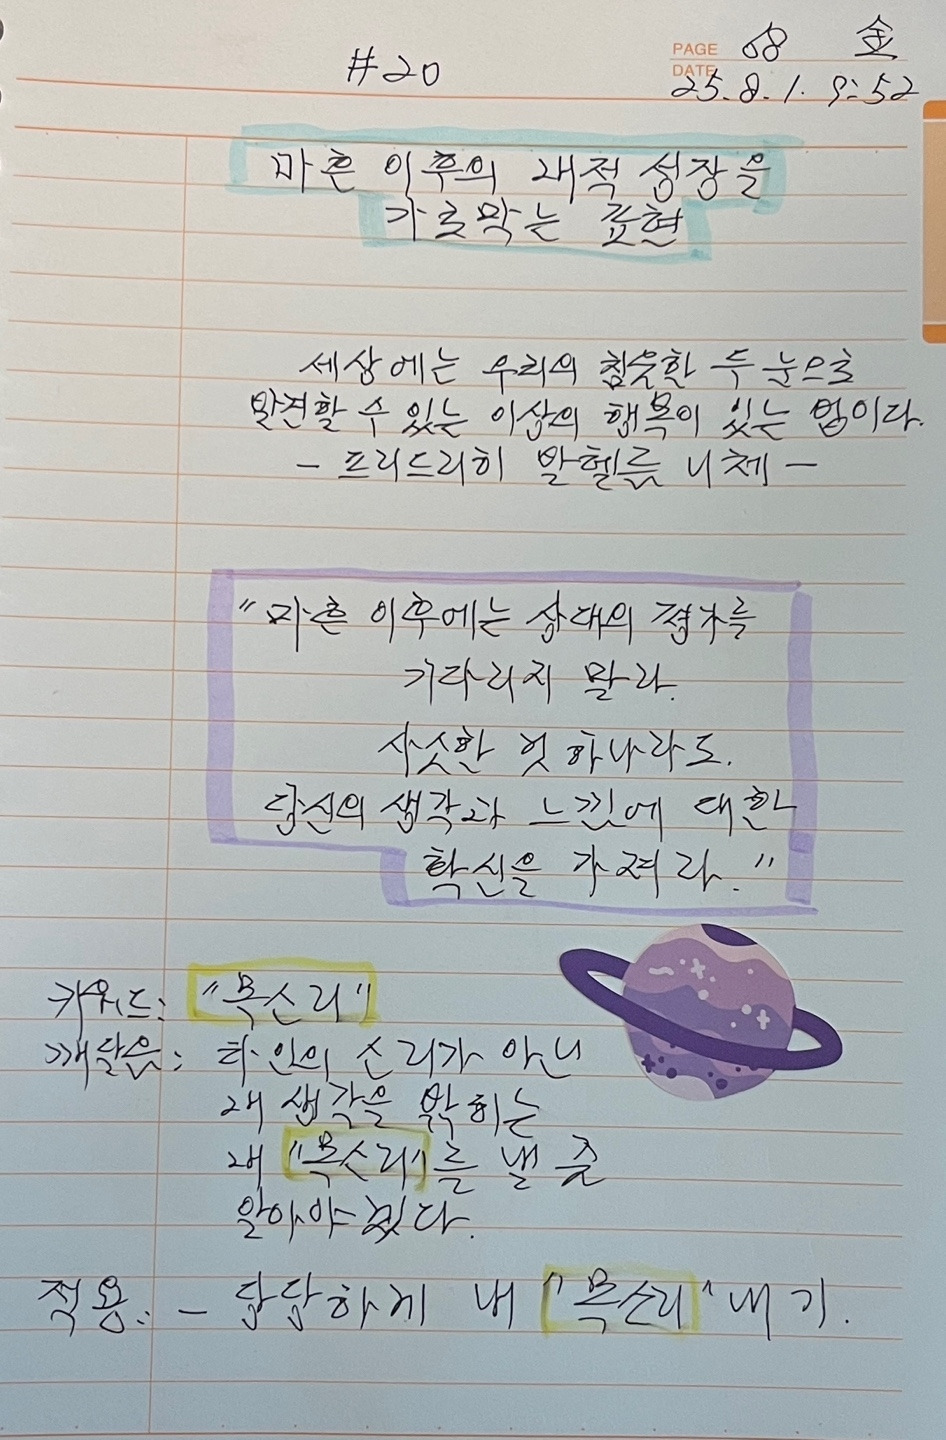 #20
PAGE 68 金
DATE 25.8.1. 9:52
마흔 이후의 내적 성장을
가로막는 표현
세상에는 우리의 침울한 두 눈으로
발견할 수 있는 이상의 행복이 있는 법이다.
- 프리드리히 빌헬름 니체 -
"마흔 이후에는 상대의 평가를
기다리지 말라.
사소한 것 하나라도.
당신의 생각과 느낌에 대한
확신을 가져라."
키워드: "목소리"
깨달음: 타인의 소리가 아닌
내 생각을 밝히는
내 "목소리"를 낼 줄
알아야겠다.
적용: - 담담하게 내 "목소리" 내기.